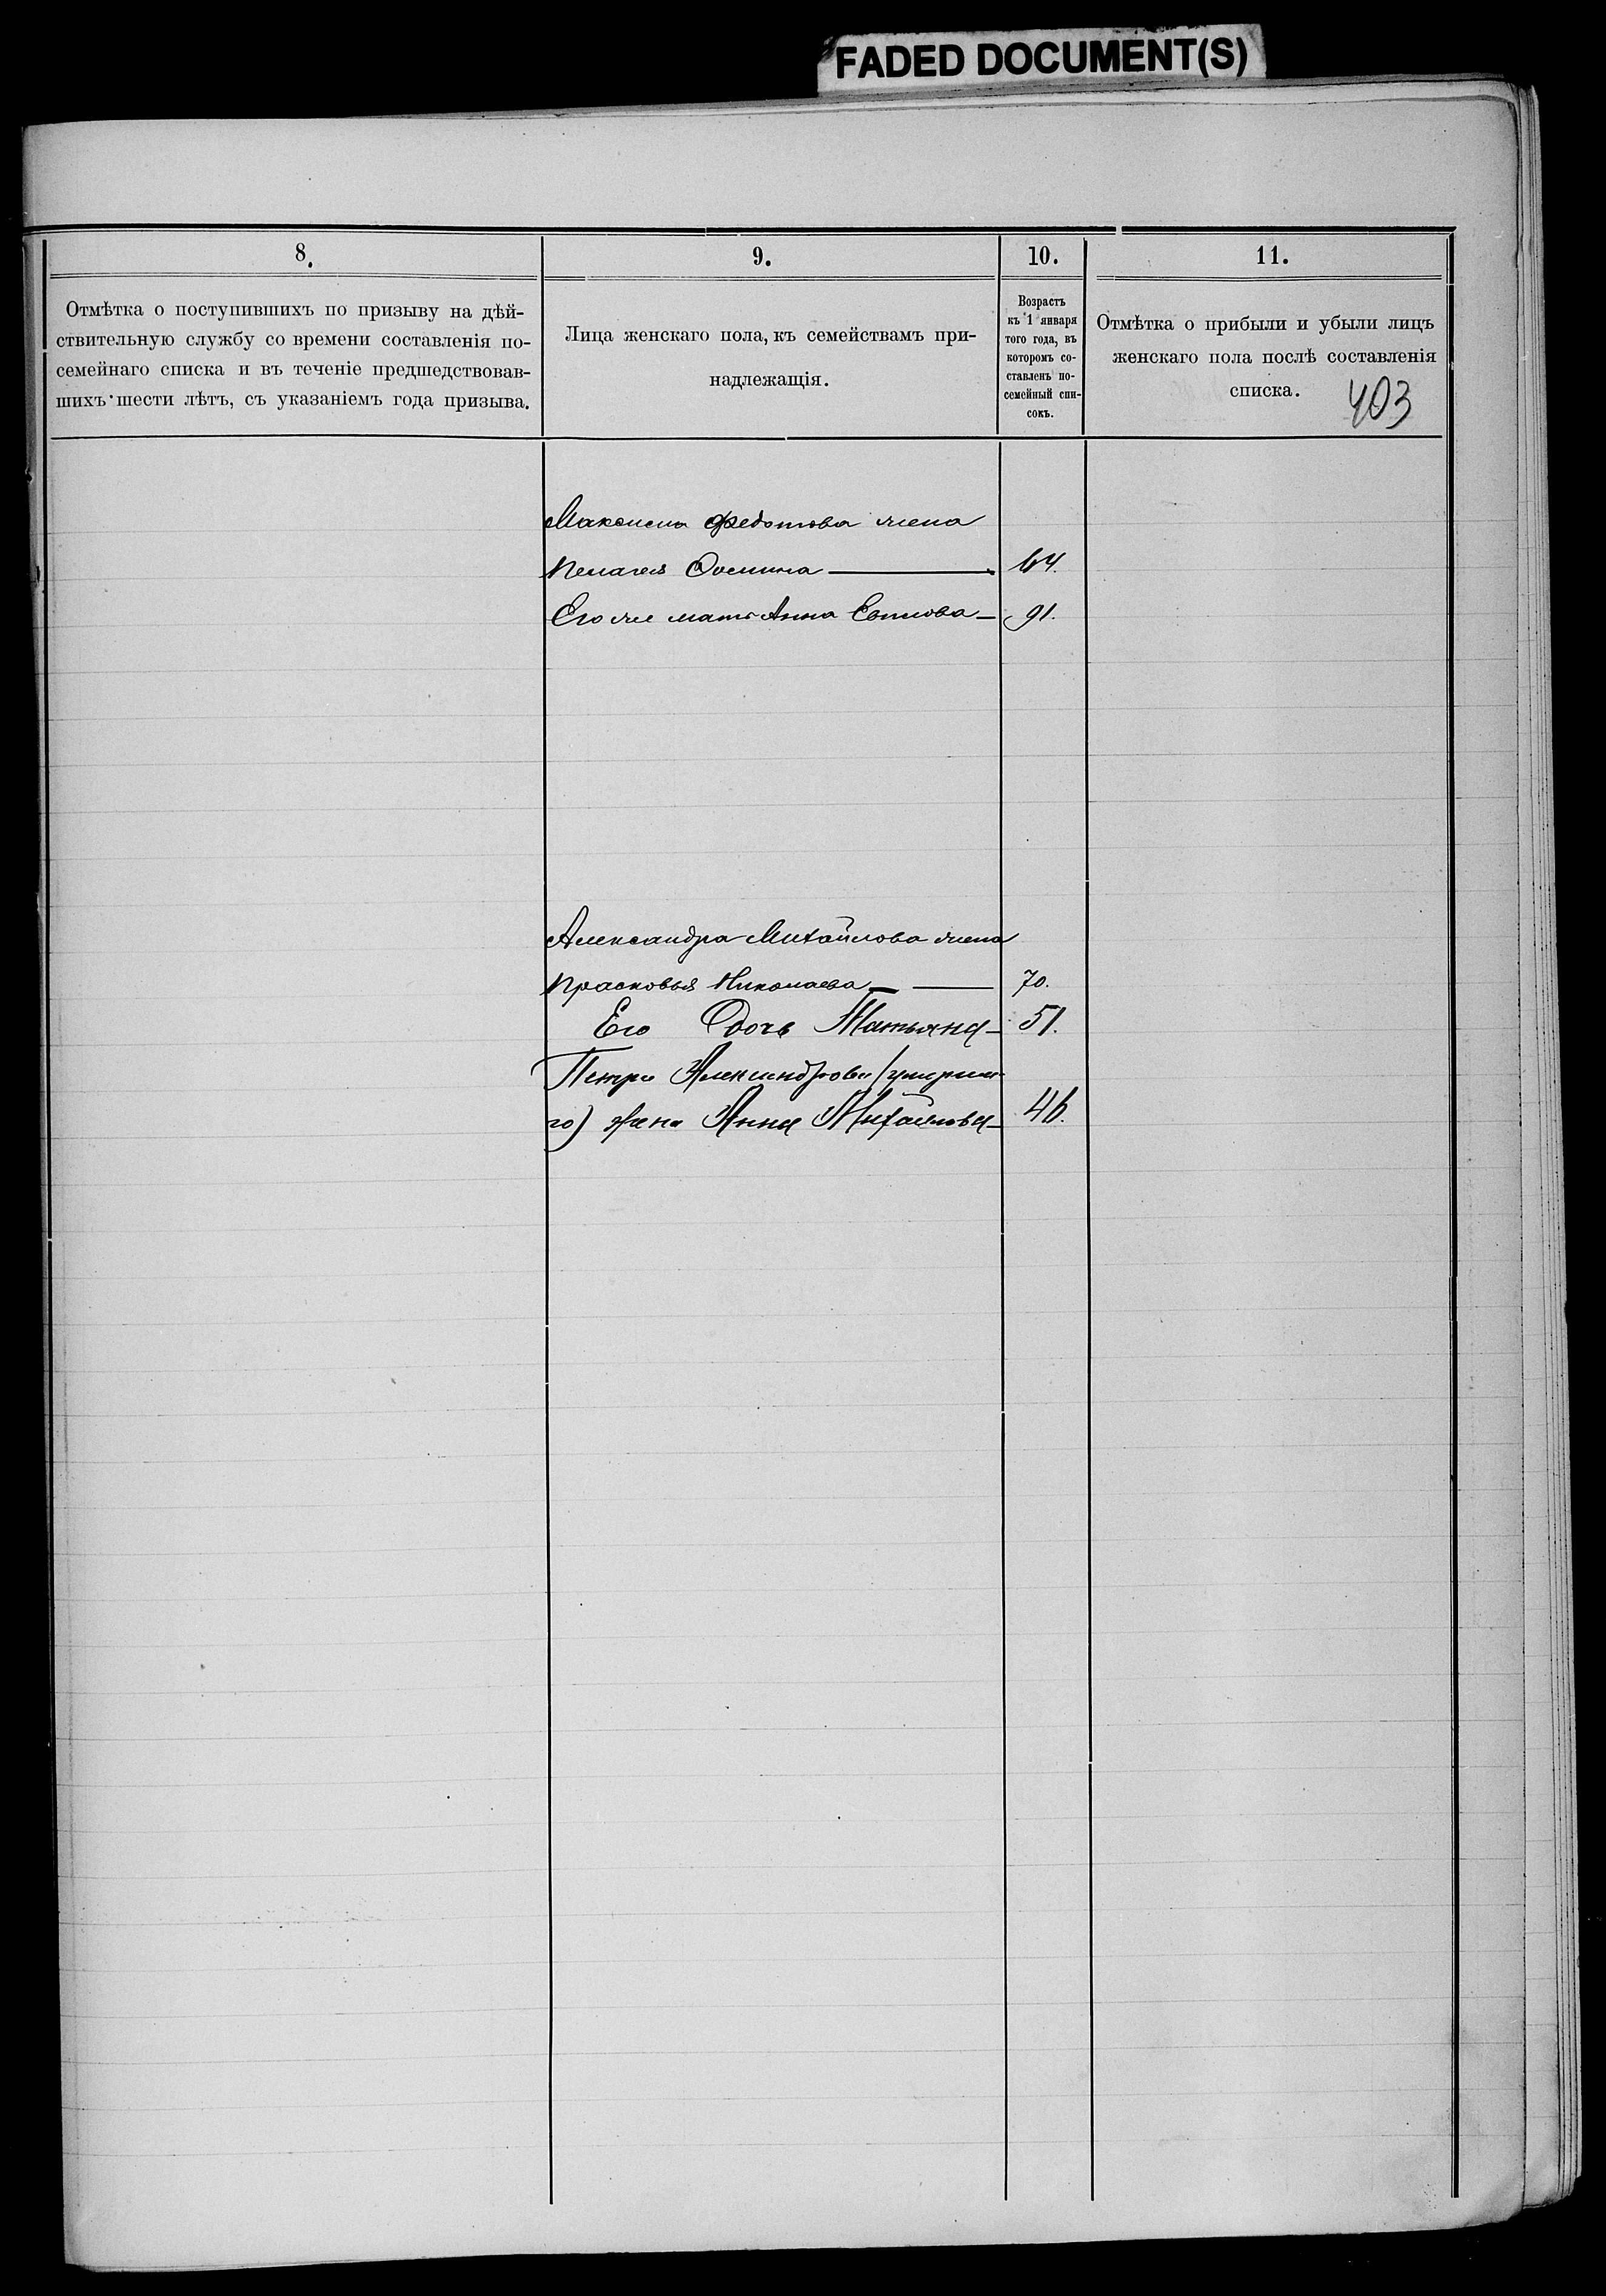 FADED DOCUMENT(S)
8.
9.
10.
11.
Отмѣтка о поступившихъ по призыву на дѣй-
ствительную службу со времени составленія по-
семейнаго списка и въ теченіе предшедствовав-
шихъ шести лѣтъ, съ указаніемъ года призыва.
Лица женскаго пола, къ семействамъ при-
надлежащія.
Возрастъ
къ 1 января
того года, въ
которомъ со-
ставленъ по-
семейный спи-
сокъ.
Отмѣтка о прибыли и убыли лицъ
женскаго пола послѣ составленія
списка.
403
Максима Федотова жена
Пелагея 64.
Его же мать Анна 91.
Александра Михайлова жена
Прасковья Николаева 70.
Его дочь Татьяна 51.
Петра Александрова (умерша-
го) жена Анна Михайлова 46.